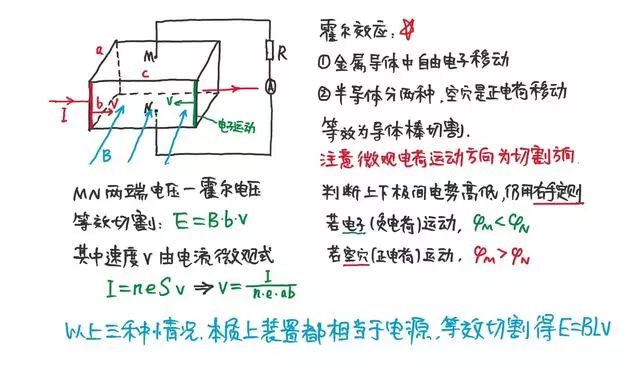 霍尔效应:
①金属导体中自由电子移动
②半导体分两种,空穴是正电荷移动
等效为导体棒切割.
注意微观电荷运动方向为切割方向.
判断上下极间电势高低,仍用右手定则
若电子(负电荷)运动, φM<φN
若空穴(正电荷)运动, φM>φN
a
M
c
R
A
I
b
v
N
v
B
电子运动
MN两端电压—霍尔电压
等效切割: E=B·b·v
其中速度v由电流微观式
I=neSv ⇒ v=I/n·e·ab
以上三种情况,本质上装置都相当于电源,等效切割得E=BLV